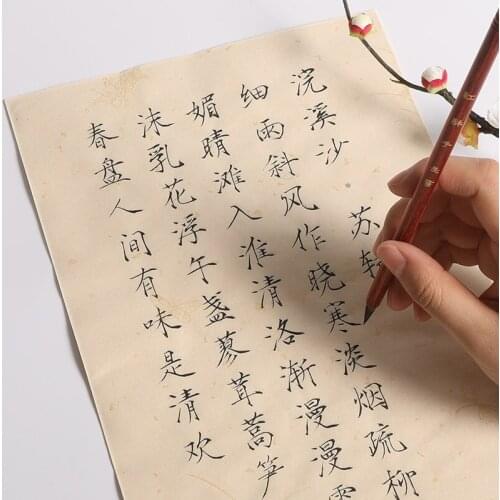 浣溪沙 苏
细雨斜风作晓寒淡烟疏柳
媚晴滩入淮清洛渐漫漫
沫乳花浮午盏蓼茸蒿笋
春盘人间有味是清欢